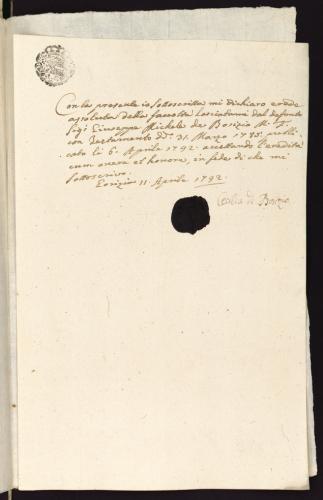 Con la presente io sottoscritta mi dichiaro erede
assoluta della facoltà lasciatami dal defunto
Sigr Giuseppe Michele de Bosizio
con testamento dd. 31. Marzo 1785. publi
cato li 6. Aprile 1792. accettando l'eredità
cum onere et honore, in fede di che mi
sottoscrivo.
Gorizia 11. Aprile 1792.
de Bosizio